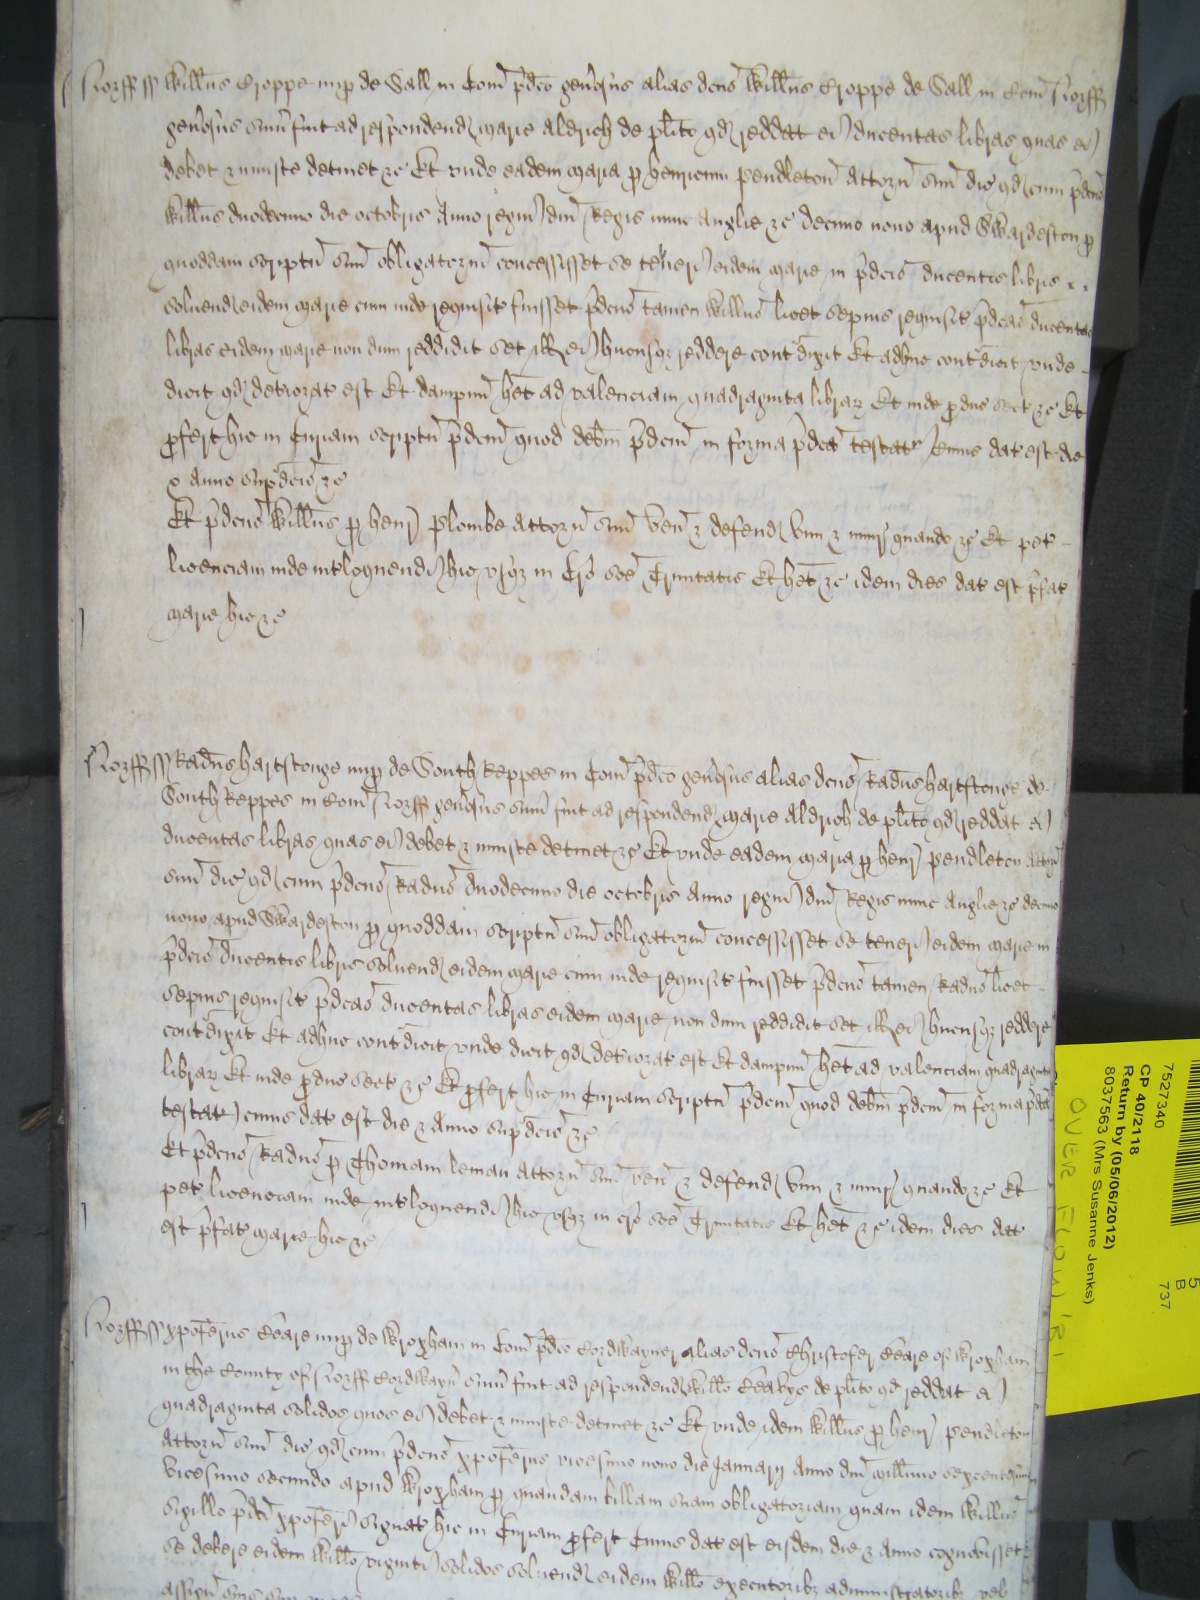 Norff ss Willus Croppe nup de Sall in Com pdco genosus alias dcus Willus Croppe de Sall in Com Norff
genosus sum fuit ad respondend Marie Aldrich de plito qd reddat ei ducentas libras quas ei
debet z iniuste detinet zc Et unde eadem Maria p henricum Pendleton Attorn suu dic qd cum pdcus
Willus duodecimo die Octobris Anno regni dni Regis nunc Anglie zc decimo nono apud Swardeston p
quoddam scriptu suu obligatoriu concessisset se teneri eidem Marie in pdcis ducentis libris
solvend eidem Marie cum inde requisit fuisset pdcus tamen Willus licet sepius requisit pdcas ducentas
libras eidem Marie non dum reddidit set ill ei hucusqz reddere contdixit Et adhuc contdicit unde
dicit qd deteriorat est Et dampnu het ad valenciam quadraginta librar Et inde pduc sect zc Et
pfert hic in Curiam scriptu pdcm quod debm pdcm in forma pdca testat Cuius dat est die
z anno supdcis zc
Et pdcus Willus p henr Plombe Attorn suu ven z defend vim z iniur quando zc Et pet
licenciam inde intloquendi hic usqz in Cro sce Trinitatis Et het zc idem dies dat est pfat
Marie hic zc
Norff ss Radus hartstonge nup de South Reppes in Com pdco genosus alias dcus Radus hartstonge de
South Reppes in Com Norff genosus sum fuit ad respondend Marie Aldrich de plito qd reddat ei
ducentas libras quas ei debet z iniuste detinet zc Et unde eadem Maria p henr Pendleton Attorn
suu dic qd cum pdcus Radus duodecimo die Octobris Anno regni dni Regis nunc Anglie zc decimo
nono apud Swardeston p quoddam scriptu suu obligatoriu concessisset se teneri eidem Marie in
pdcis ducentis libris solvend eidem Marie cum inde requisit fuisset pdcus tamen Radus licet
sepius requisit pdcas ducentas libras eidem Marie non dum reddidit set ill ei hucusqz reddere
contdixit Et adhuc contdicit unde dicit qd deteriorat est Et dampnu het ad valenciam quadraginta
librar Et inde pduc sect zc Et pfert hic in Curiam scriptu pdcm quod debm pdcm in forma pdca
testat cuius dat est die z Anno supdcis zc
Et pdcus Radus p Thomam leman Attorn suu ven z defend vim z iniur quando zc Et
pet licenciam inde intloquendi hic usqz in cro sce Trinitatis Et het zc idem dies dat
est pfat Marie hic zc
Norff ss Xpoferus Cleare nup de Wroxham in Com pdco Cordwayner alias dcus Christofer Cleare of Wroxham
in the County of Norff Cordwayn sum fuit ad respondend Willo de plito qd reddat ei
quadraginta solidos quos ei debet z iniuste detinet zc Et unde idem Willus p henr Pendleton
Attorn suu dic qd cum pdcus Xpoferus vicesimo nono die Januarij Anno dni Millimo sexcentesimo
vicesimo secundo apud Wroxham p quandam billam suam obligatoriam quam idem Willus
sigillo pdci Xpoferi signat hic in Curiam pfert Cuius dat est eisdem die z anno cognovisset
se debere eidem Willo viginti solidos solvend eidem Willo executoribz administratoribz vel
assign suis
7527340
CP 40/2118
Return by (05/06/2012)
8037563 (Mrs Susanne Jenks)
5
B
737
OVER FLOW